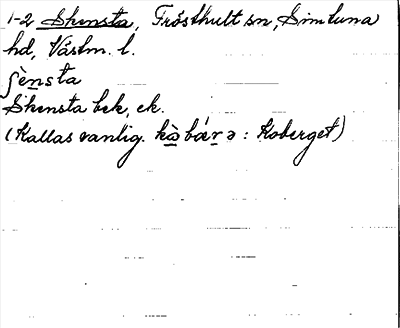 1-2 Skensta, Frösthult sn, Simtuna
hd, Västm. l.
ʃènsta
Skensta bek, ek.
(Kallas vanlig. kò̱bǽṟə : Koberget)